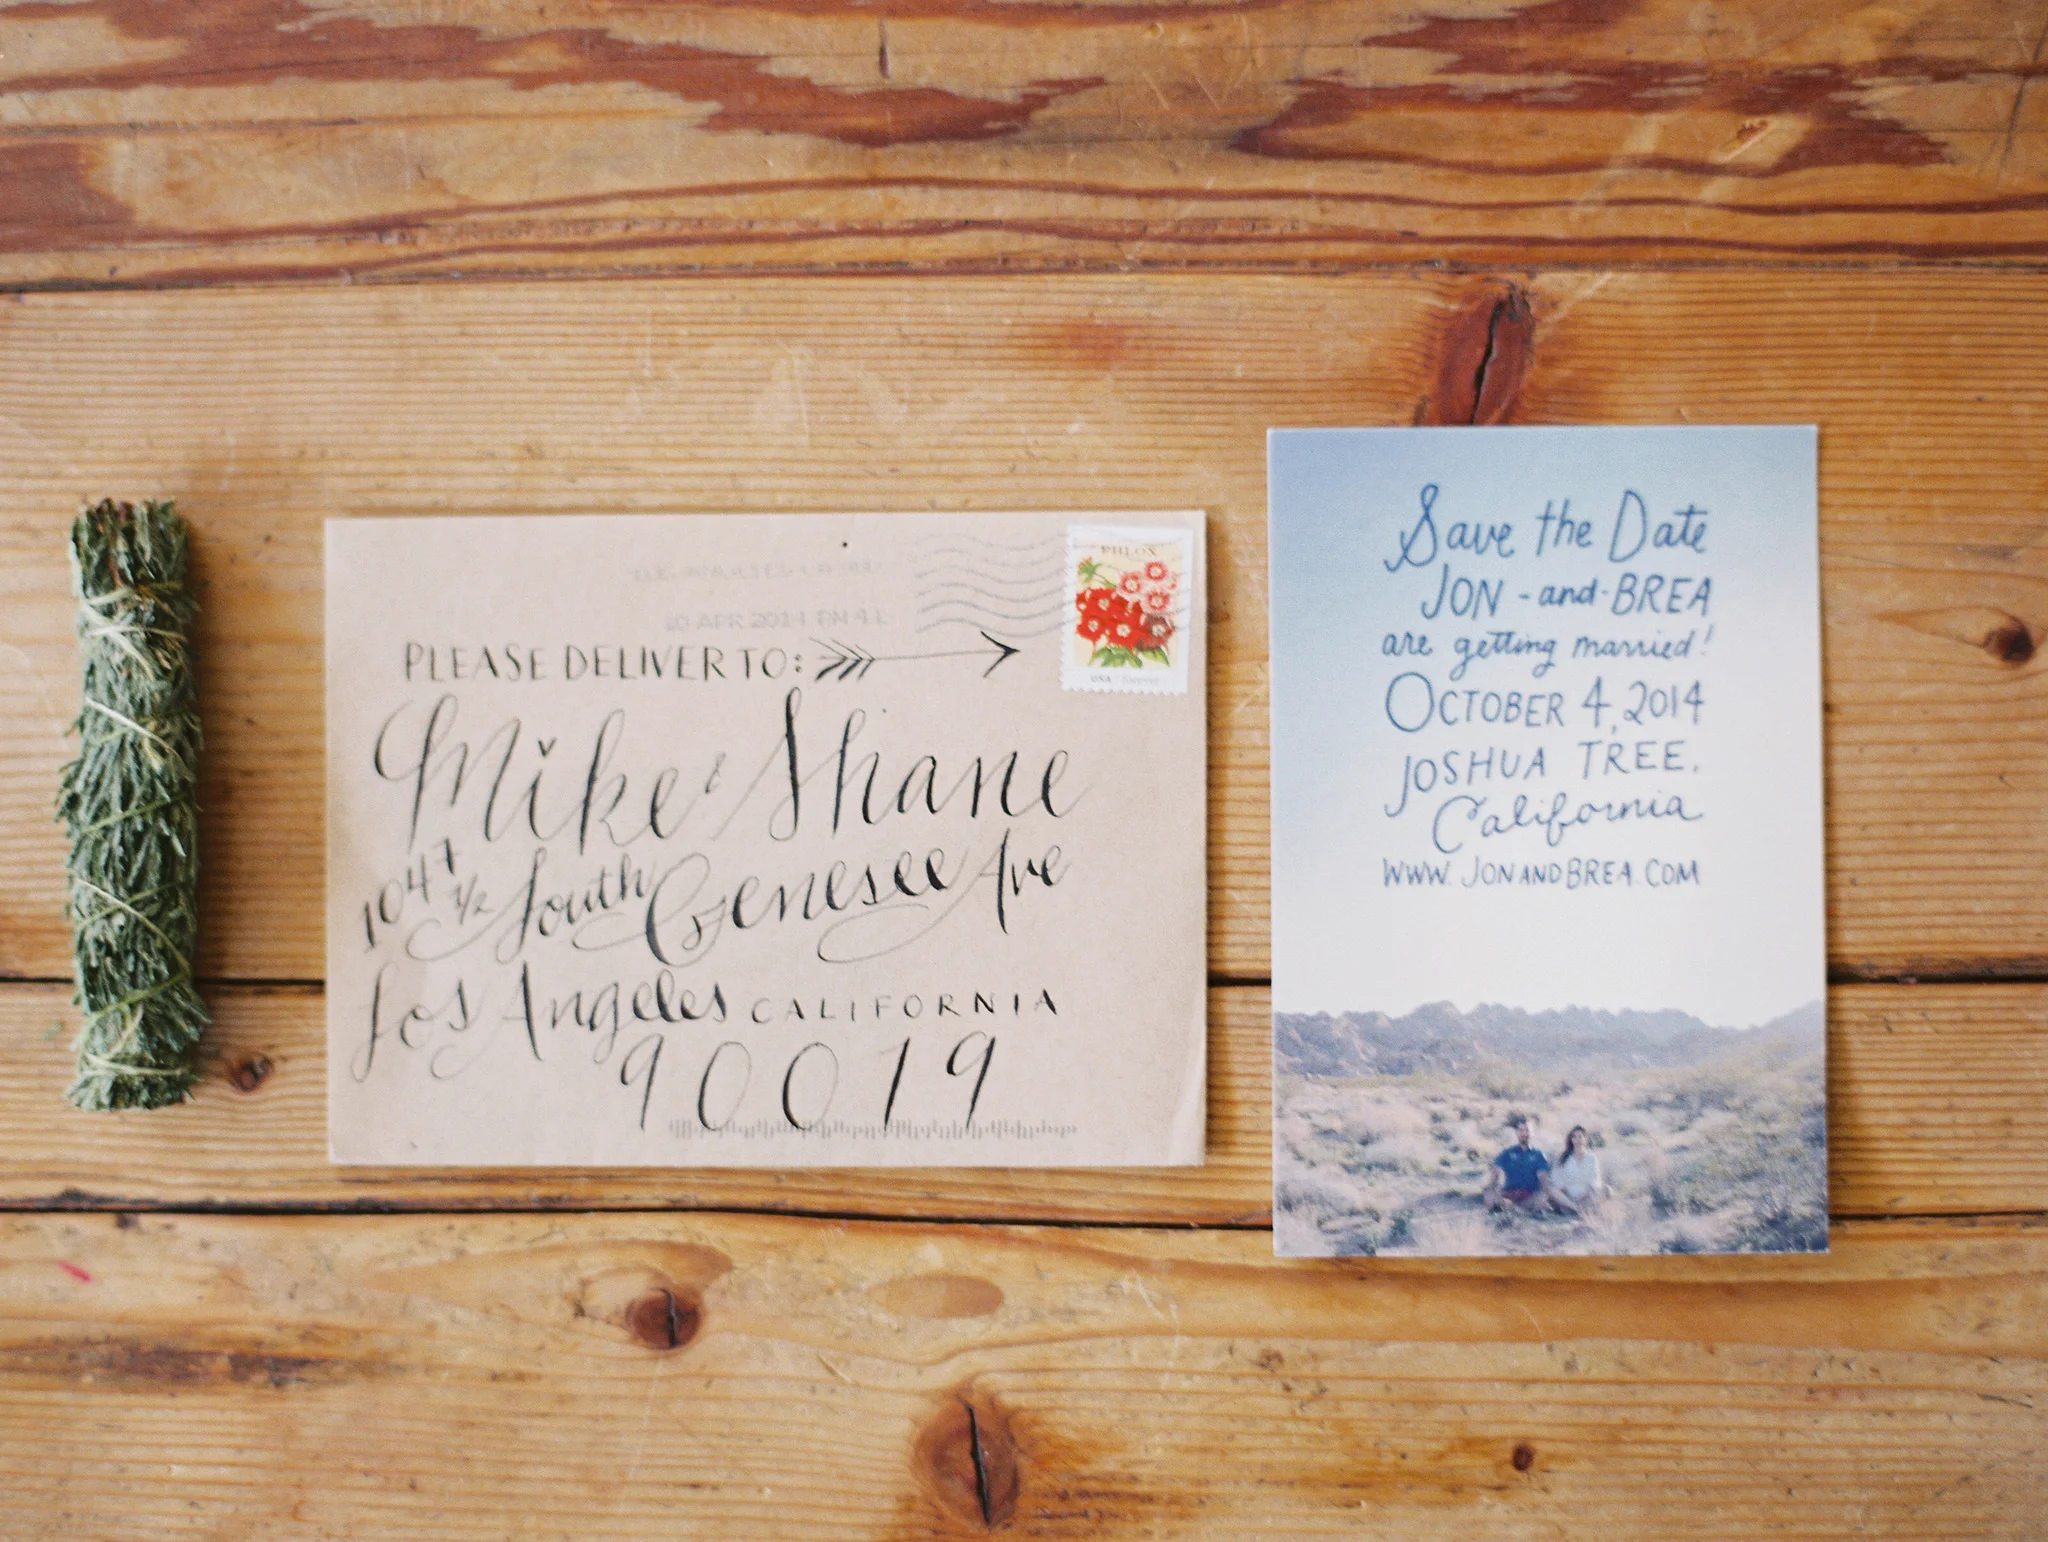 10 APR 2014 PM 4 L
PHLOX
USA forever
PLEASE DELIVER TO:
Mike & Shane
1047 1/2 South Genesee Ave
Los Angeles CALIFORNIA
90019
Save the Date
JON - and - BREA
are getting married!
OCTOBER 4, 2014
JOSHUA TREE,
California
WWW.JONANDBREA.COM